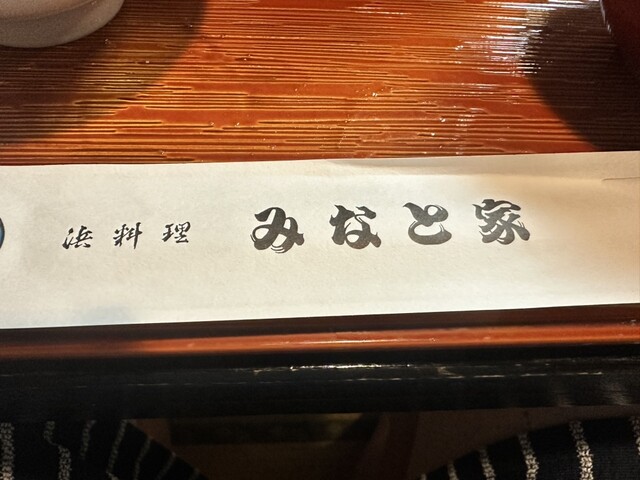 浜料理 みなと家